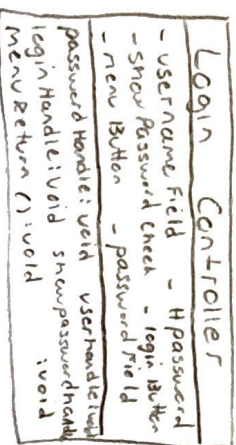 Login Controller
- username Field - Hpassword
- show Password Check - login Button
- menu Button - password Field
passwordHandle: void userhandle: void
loginHandle: void showpasswordhandle : void
menuReturn () : void